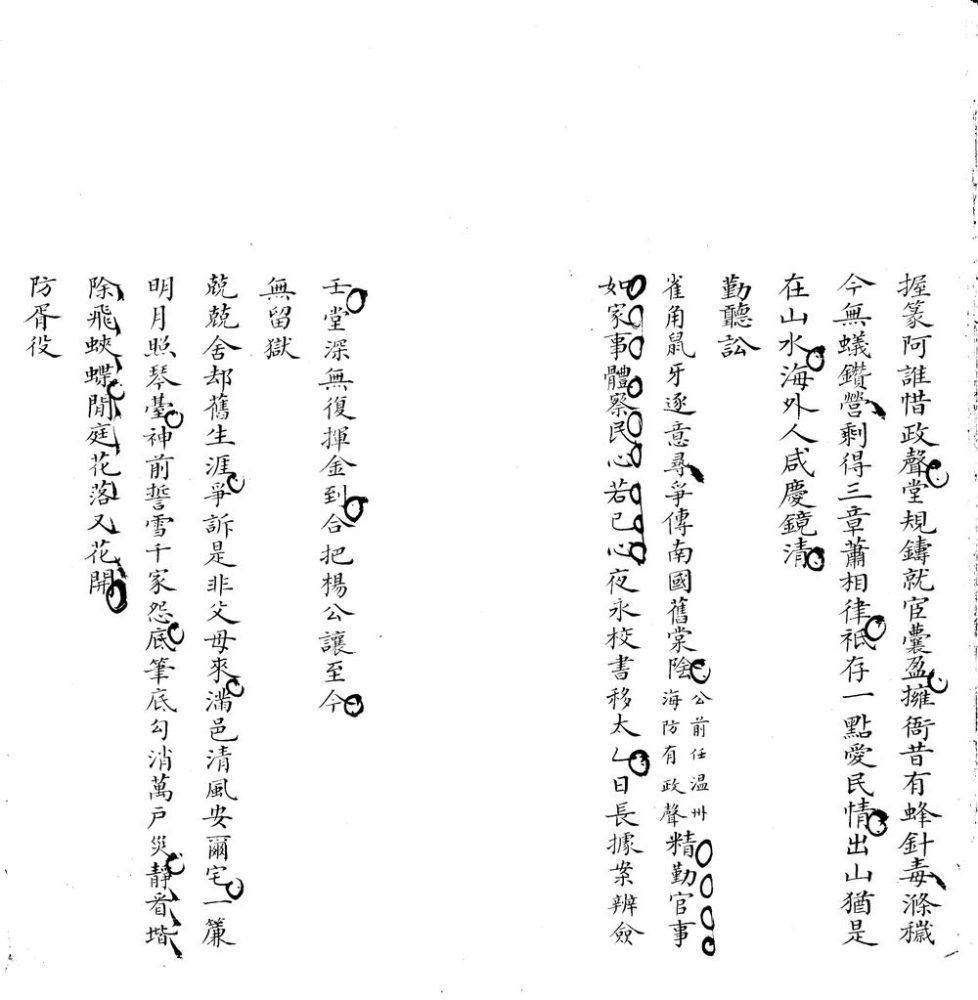 握篆阿誰惜政聲堂規鑄就宦囊盈擁衙昔有蜂針毒滌穢
今無蟻鑽營剩得三章蕭相律祇存一點愛民情出山猶是
在山水海外人咸慶鏡清
勤聽訟
雀角鼠牙逐意尋爭傳南國舊棠陰公前任温州海防有政聲精勤官事
如家事體察民心若已心夜永校書移太乙日長據案辨僉
壬堂深無復揮金到合把楊公讓至今
無留獄
兢兢舍却舊生涯爭訴是非父母來滿邑清風安爾宅一簾
明月照琴臺神前誓雪千家怨底筆底勾消萬戶災靜看堦
除飛蛺蝶閒庭花落又花開
防胥役